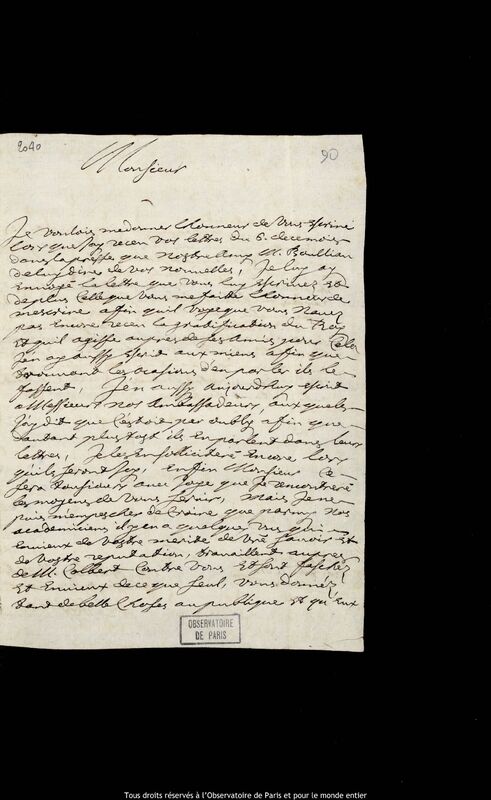 2040
90
Monsieur
Je voulois me donner l'honneur de vous escrire
lors que j'ay receu vos lettres du 6. decembre
dans la presse que nostre amy M. Boulliau
de luy dire de vos nouvelles, Je luy ay
envoyé la lettre que vous luy escrivez et
de plus celle que vous me faites l'honneur de
m'escrire affin qu'il voye que vous n'avez
pas encore receu la gratification du Roy
et qu'il agisse aupres de ses amis pour cela
J'en ay aussy escrit aux miens affin que
trouvant les ocasions d'en parler ils le
fassent, J'en aussy aujourdhuy escrit
a Messieurs nos Ambassadeurs, aux quels
j'ay dit que c'estoit par oubly afin que
dautant plustost ils en parlent dans leurs
lettres, Je les en solliciteré encore lors
qu'ils seront icy, enfin Monsieur ce
sera tousjours avec joye que je rencontreré
les moyens de vous servir, mais je ne
puis m'empescher de croire que parmy nos
academiciens il y en a quelques uns qui
envieux de vostre merite de vre scavoir et
de vostre reputation, travaillent aupres
de M. Colbert contre vous et sont faschés
et envieux de ce que seul, vous donnés
tant de belle choses au publique et qu'eux
OBSERVATOIRE
DE PARIS
Tous droits réservés à l'Observatoire de Paris et pour le monde entier